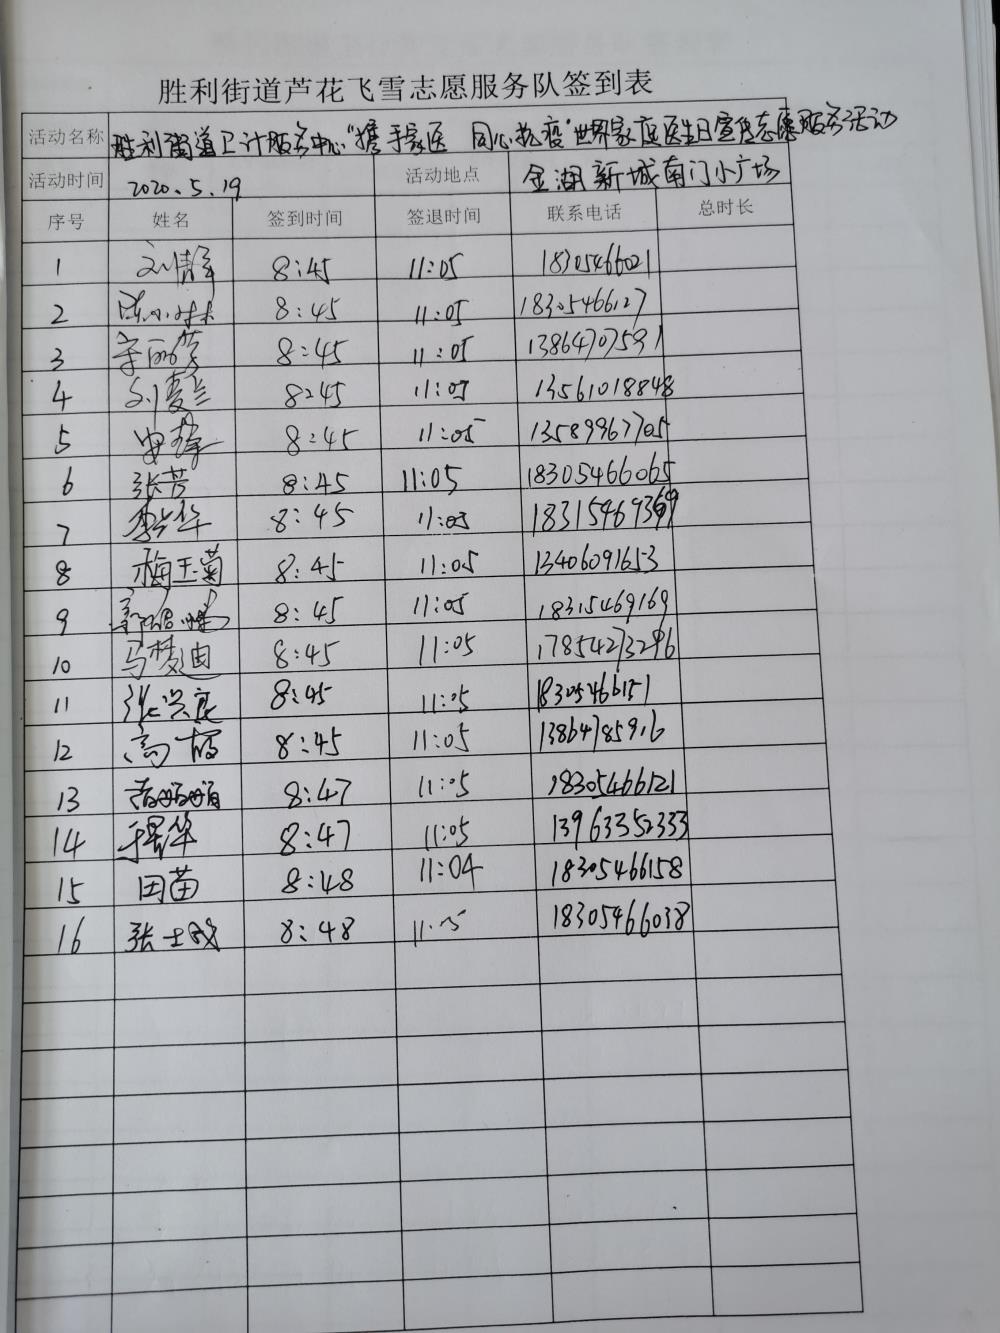 胜利街道芦花飞雪志愿服务队签到表
活动名称 胜利街道卫计服务中心“携手家医 同心抗疫”世界家庭医生日宣传志愿服务活动
活动时间 2020.5.19 活动地点 金湖新城南门小广场
序号 姓名 签到时间 签退时间 联系电话 总时长
1 8:45 11:05 18305466021
2 陈小林 8:45 11:05 18305466127
3 8:45 11:05 13864707591
4 刘爱兰 8:45 11:05 13561018848
5 8:45 11:05 13589967705
6 张芳 8:45 11:05 18305466065
7 8:45 11:05 18315469369
8 梅玉菊 8:45 11:05 13406091653
9 8:45 11:05 18315469169
10 马梦迪 8:45 11:05 17854273296
11 8:45 11:05 18305466151
12 高 8:45 11:05 13864785916
13 8:47 11:05 18305466121
14 8:47 11:05 13963352333
15 田苗 8:48 11:04 18305466158
16 张士成 8:48 11:05 18305466038